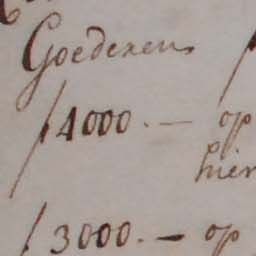 Goederen
ƒ 4000.— op
hier
ƒ 3000.— op